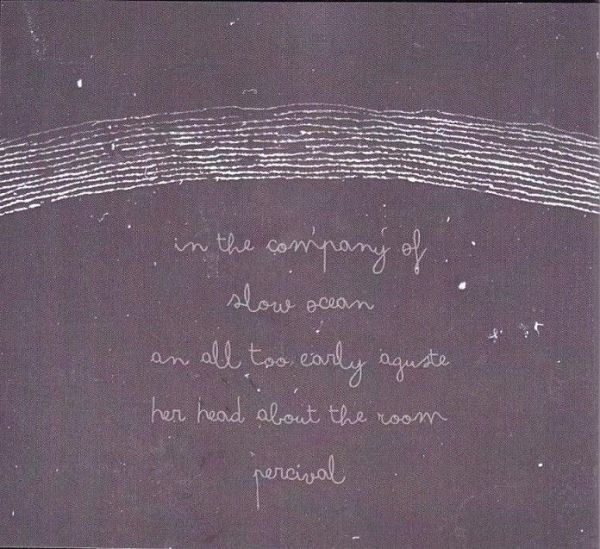 in the company of
slow ocean
an all too early aguste
her head about the room
percival